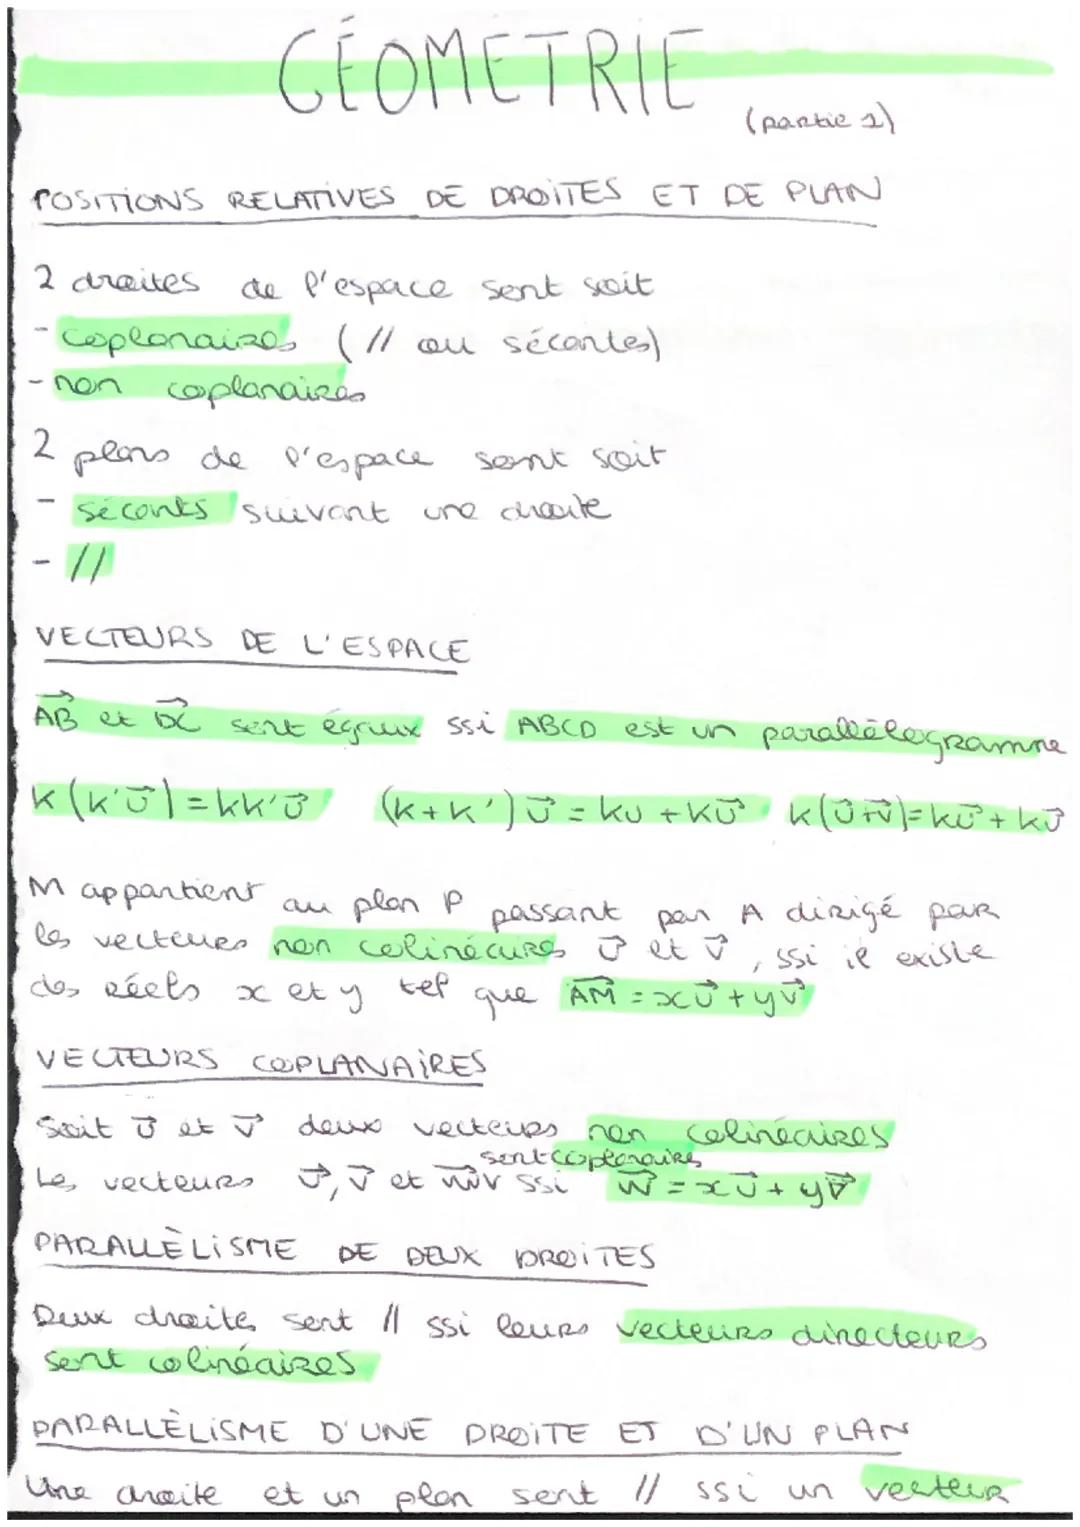 GÉOMÉTRIE
(partie 1)
POSITIONS RELATIVES DE DROITES ET DE PLAN
2 droites de l'espace sont soit
- coplanaires (// ou sécantes)
- non coplanaires
2 plans de l'espace sont soit
- sécants suivant une droite
- //
VECTEURS DE L'ESPACE
A⃗B⃗ et D⃗C⃗ sont égaux ssi ABCD est un parallélogramme
k(k'u⃗)=kk'u⃗ (k+k')u⃗ = ku + ku⃗ k(u⃗+v⃗)=ku⃗ + kv⃗
M appartient au plan P passant par A dirigé par
les vecteurs non colinéaires u⃗ et v⃗, ssi il existe
des réels x et y tel que A⃗M⃗ = xu⃗ + yv⃗
VECTEURS COPLANAIRES
Soit u⃗ et v⃗ deux vecteurs non colinéaires
sont coplanaires
Les vecteurs u⃗, v⃗ et w⃗ ssi w⃗ = xu⃗ + yv⃗
PARALLÈLISME DE DEUX DROITES
Deux droites sont // ssi leurs vecteurs directeurs
sont colinéaires
PARALLÈLISME D'UNE DROITE ET D'UN PLAN
Une droite et un plan sont // ssi un vecteur